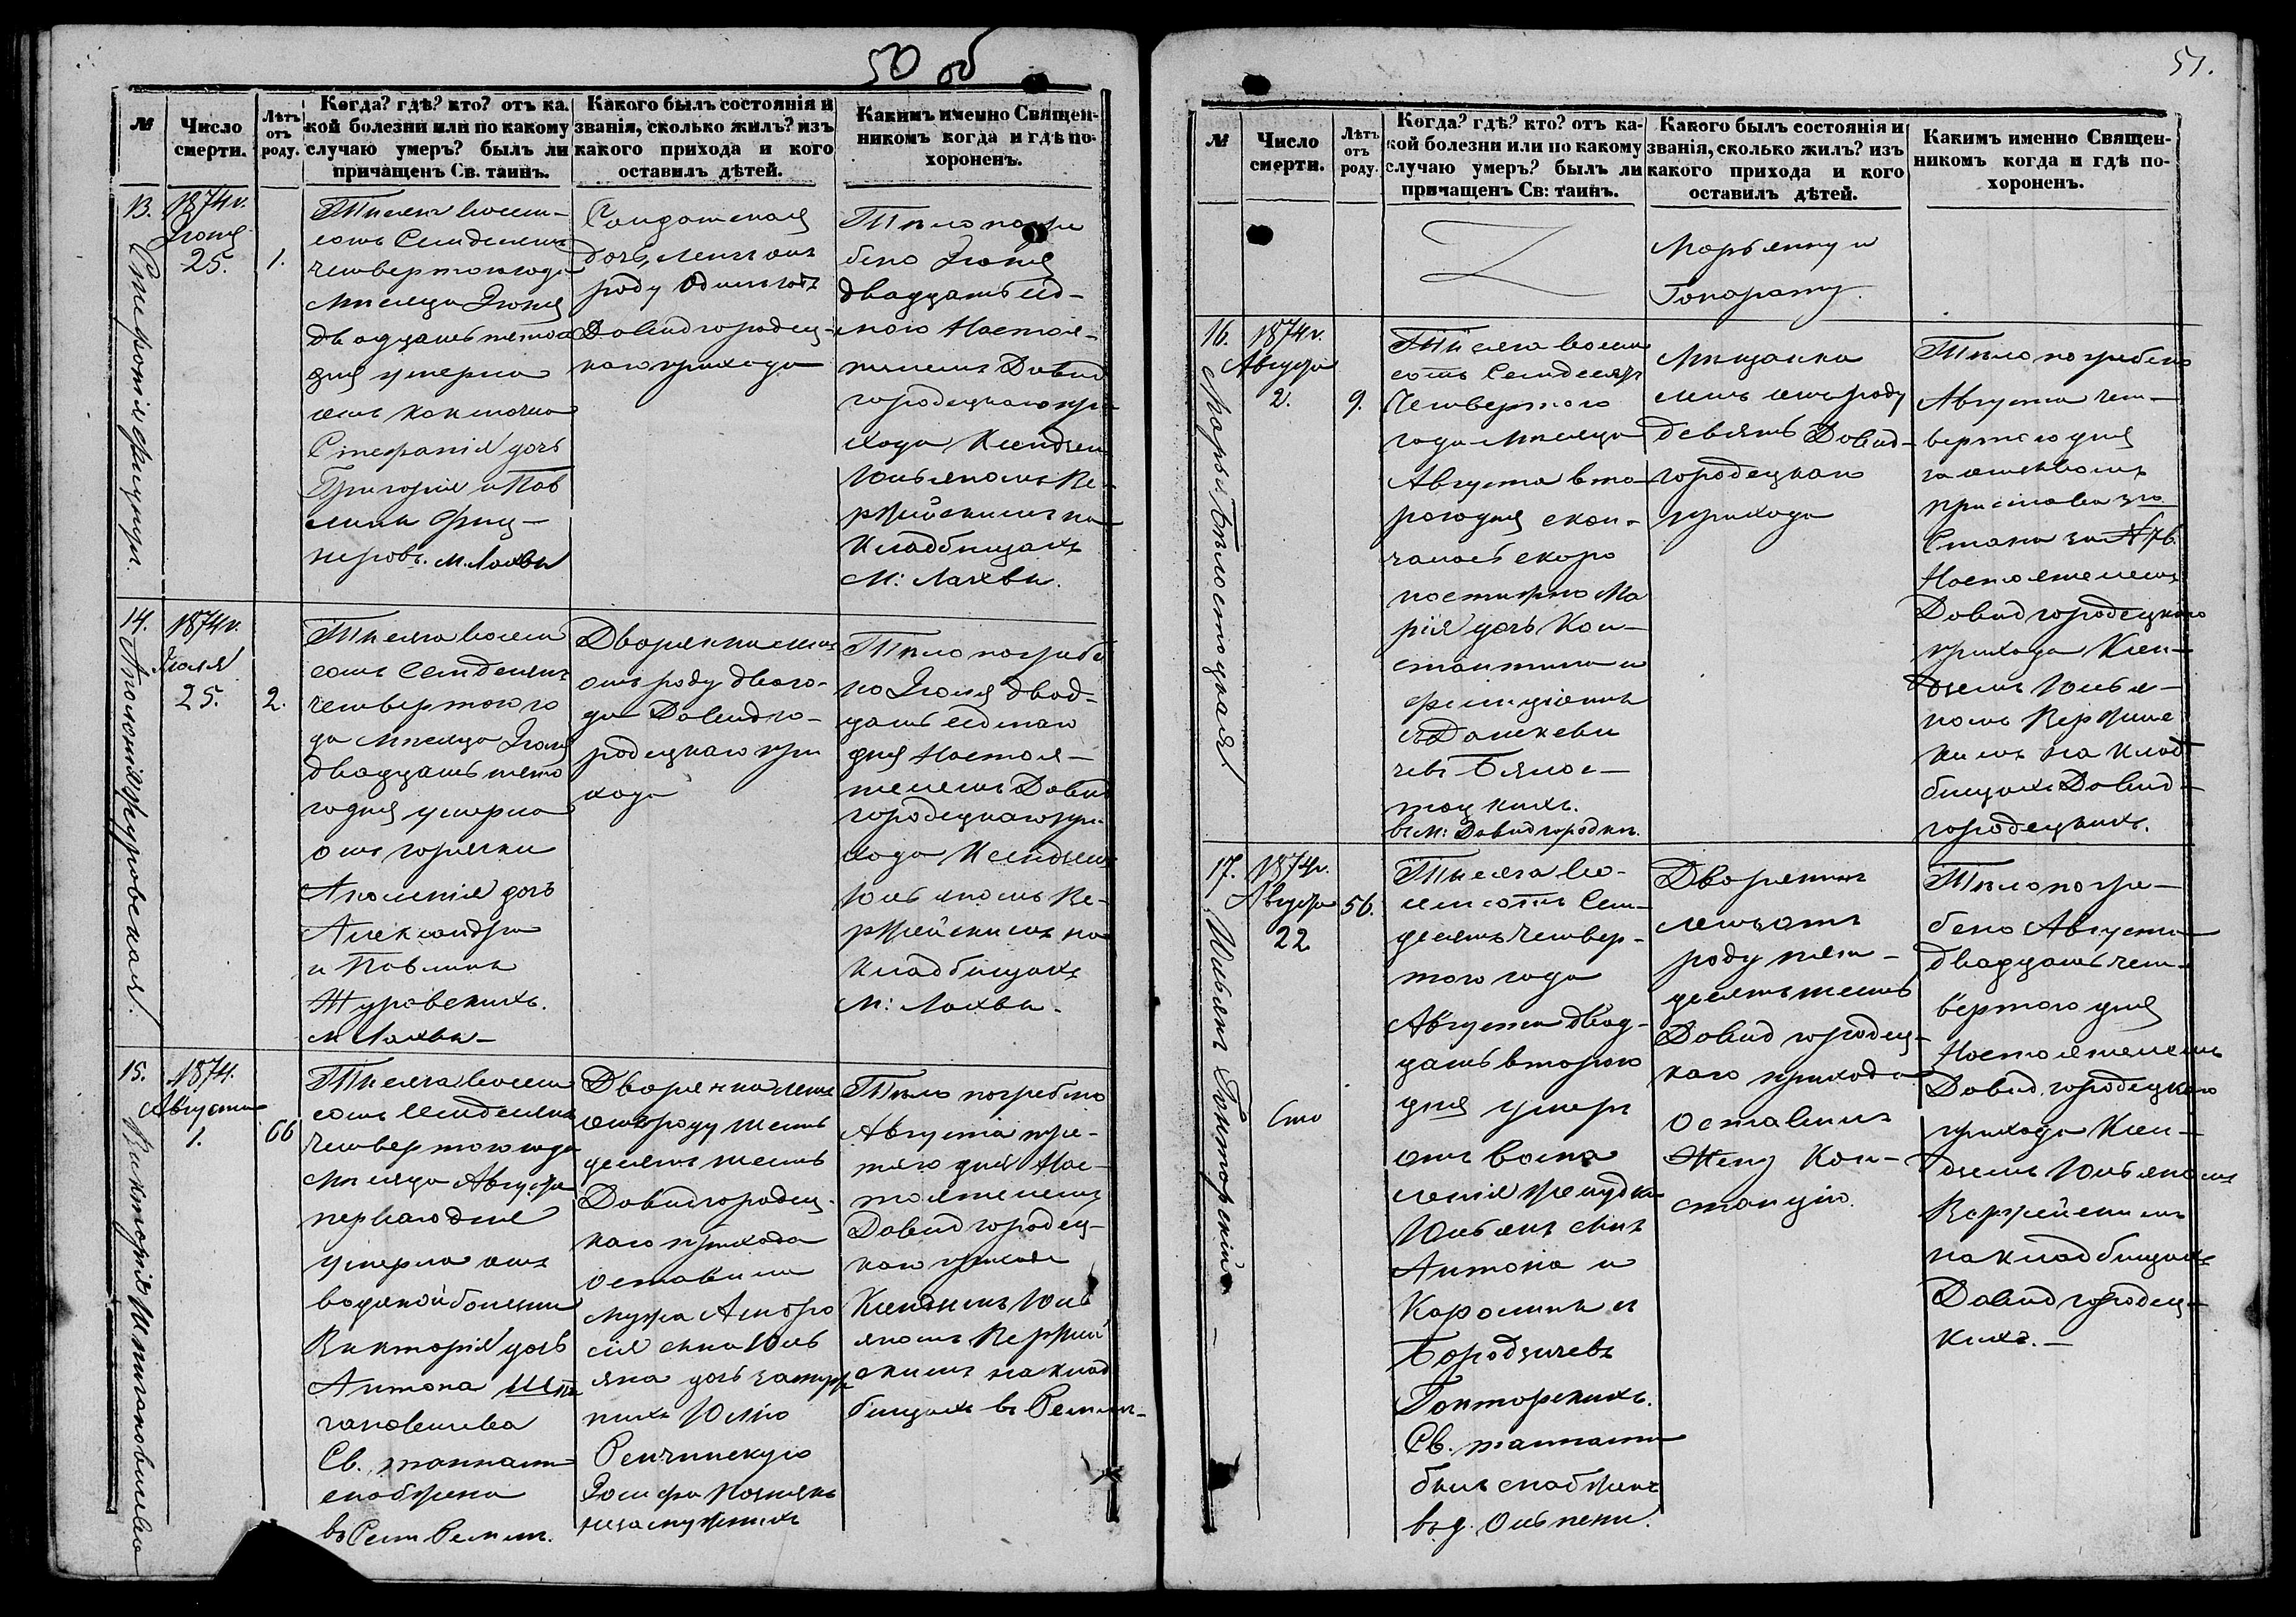 50 об
№
Число
смерти.
Лѣтъ
отъ
роду.
Когда? гдѣ? кто? отъ ка-
кой болезни или по какому
случаю умеръ? былъ ли
причащенъ Св. таинъ.
Какого былъ состоянія и
званія, сколько жилъ? изъ
какого прихода и кого
оставилъ дѣтей.
Какимъ именно Священ-
никомъ когда и гдѣ по-
хороненъ.
13.
1874 г.
Іюня
25.
1.
Тысяча восем-
сотъ Семдесятъ
четвертого года
Мѣсяца Іюня
двадцать пятого
дня умерла
Стефанія дочь
Григорія и Пав
лины
м. Лахвы
Солдатская
дочь, летъ отъ
роду одинъ годъ
Давидгородец-
каго прихода
Тѣло погре
бено Іюня
двадцать сед-
мого Настоя-
телемъ Давид
городецкаго при
хода Ксендзем
Юльяномъ Ве-
ржейскимъ на
Кладбищахъ
М: Лахвы.
14.
1874 г.
Іюля
25.
2.
Тысяча восем
сотъ Семдесятъ
четвертого го
да Мѣсяца Іюля
двадцать пято
го дня умерла
отъ горячки
Аполенія дочь
Александра
и Павлины
Журовскихъ.
м Лахвы-
Дворянка летъ
отъ роду два го-
да Давидго-
родецкаго при
хода
Тѣло погребе
но Іюля двад-
цать седмаго
дня Настоя-
телемъ Давид
городецкаго при-
хода Ксендзем
Юльяномъ Ве-
ржейскимъ на
Кладбищахъ
М: Лахвы.
15.
1874.
Августа
1.
66
Тысяча восем
сотъ семдесятъ
четвертого года
Мѣсяца Августа
перваго дня
умерла отъ
водяной болезни
Викторія дочь
Антона
Св. тайнами
снабжена
Дворянка летъ
отъ роду шесть
десятъ шесть
Давидгородец-
каго прихода
оставила
мужа
сія сына Юль
яна дочь замуж
нихъ Юлію
незамужнихъ
Тѣло погребено
Августа тре-
тяго дня Нас-
тоятелемъ
Давид городец-
каго прихода
Ксендземъ Юль
яномъ Вержей
скимъ на клад
бищахъ въ
51.
№
Число
смерти.
Лѣтъ
отъ
роду.
Когда? гдѣ? кто? отъ ка-
кой болезни или по какому
случаю умеръ? былъ ли
причащенъ Св: таинъ.
Какого былъ состоянія и
званія, сколько жилъ? изъ
какого прихода и кого
оставилъ дѣтей.
Какимъ именно Священ-
никомъ когда и гдѣ по-
хороненъ.
Марьянну и
Гонорату.
16.
1874 г.
Августа
2.
9.
Тысяча восем
сотъ Семдесятъ
Четвертого
года Мѣсяца
Августа вто-
рого дня скон-
чалась скоро
постижно Ма
рія дочь Кон-
стантина и
Фелиціанны
съ Дашкеви
чевъ Бялос-
тоцкихъ.
въ м: Давидгородкѣ.
Мѣщанка
летъ отъ роду
девять Давид-
городецкаго
прихода
Тѣло погребено
Августа чет-
вертого дня
пристава 3го
Стана за № 76.
Настоятелемъ
Давидгородецкаго
прихода Ксен-
дземъ Юлья-
номъ Вержейс
кимъ на клад
бищахъ Давид-
городецкихъ.
17.
1874 г.
Августа
22
56.
Тысяча во-
семсотъ Сем-
десятъ Четвер-
того года
Августа двад-
цать второго
дня умеръ
отъ воспа
ленія желудка
Юльянъ сынъ
Антона и
Каролины съ
Бородзичевъ
Гонторскихъ.
Св. тайнами
былъ снабженъ
въ д. Ольпени.
Дворянинъ
летъ отъ
роду пять-
десятъ шесть
Давид городец-
каго прихода
оставилъ
Жену Кон-
станцію.
Тѣло погре-
бено Августа
двадцать чет-
вертого дня
Настоятелемъ
Давид городецкаго
прихода Ксен-
дземъ Юльяномъ
Вержейскимъ
на кладбищахъ
Давид городец-
кихъ. -